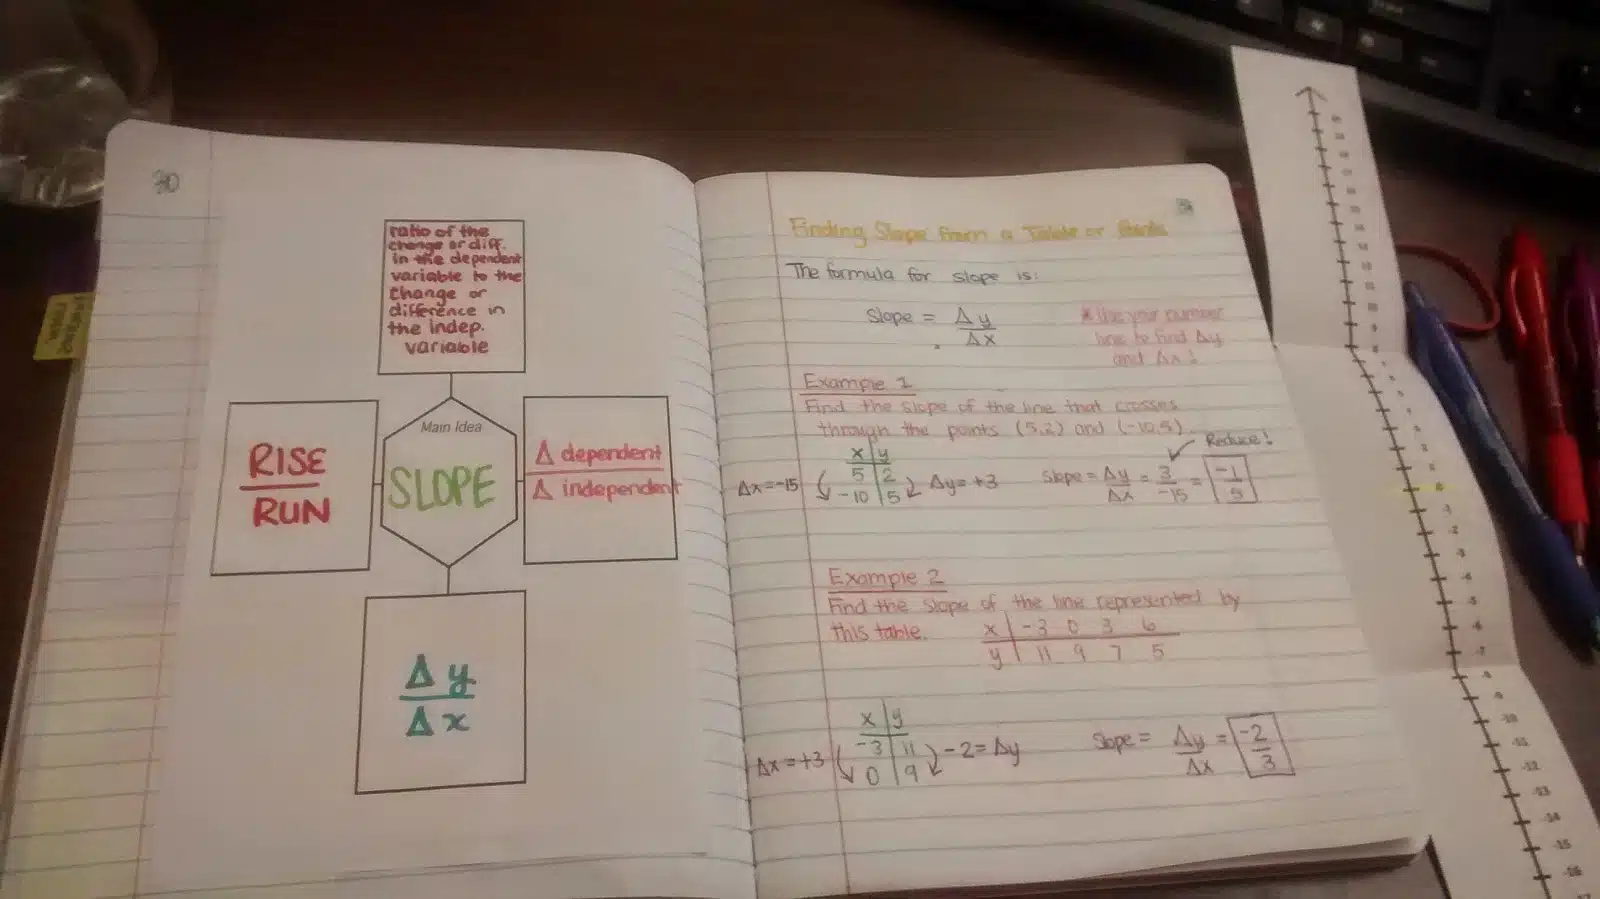 30
ratio of the
change or diff.
in the dependent
variable to the
change or
difference in
the indep.
variable
RISE
RUN
Main Idea
SLOPE
Δ dependent
Δ independent
Δy
Δx
Finding Slope from a Table or Points
The formula for slope is:
Slope = Δy
Δx
* Use your number
line to find Δy
and Δx!
Example 1
Find the slope of the line that crosses
through the points (5,2) and (-10,5).
Reduce!
x y
5 2
-10 5
Δx=-15
Δy=+3
Slope = Δy = 3 = -1
Δx -15 5
Example 2
Find the slope of the line represented by
this table.
x -3 0 3 6
y 11 9 7 5
x y
-3 11
0 9
Δx=+3
-2=Δy
Slope = Δy = -2
Δx 3
0
-1
-2
-3
-4
-5
-6
-7
-8
-9
-10
-11
-12
-13
-14
-15
-16